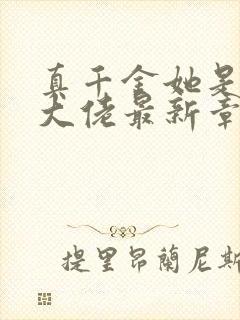 真千金她是
大佬最新章
提里昂蘭尼斯